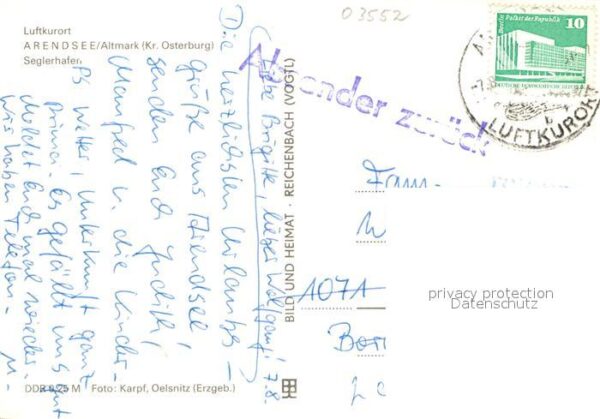 03552
Luftkurort
ARENDSEE/Altmark (Kr. Osterburg)
Seglerhafen
Absender zurück
Berlin Palast der Republik
10
DEUTSCHE DEMOKRATISCHE REPUBLIK
LUFTKURORT
7.8.
Liebe Brigitte, lieber Wolfgang!
Die herzlichsten Urlaubs-
grüße aus Arendsee
senden Euch Judith,
Manfred u. die Kinder.
PS Wetter, Unterkunft ganz
prima. Es gefällt uns gut
Meldet Euch mal wieder.
Wir haben Telefon.
BILD UND HEIMAT · REICHENBACH (VOGTL)
1071
privacy protection
Datenschutz
DDR 0,25 M Foto: Karpf, Oelsnitz (Erzgeb.)